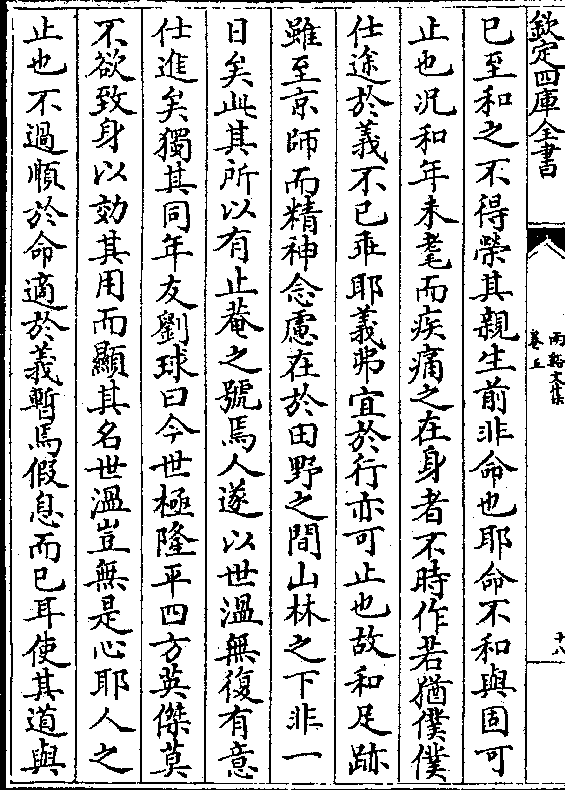 欽定四庫全書
兩谿文集
卷五
十八
已至和之不得榮其親生前非命也耶命不和與固可
止也况和年未耄而疾痛之在身者不時作若猶僕僕
仕途於義不已乖耶義弗宜於行亦可止也故和足跡
雖至京師而精神念慮在於田野之間山林之下非一
日矣此其所以有止菴之號焉人遂以世温無復有意
仕進矣獨其同年友劉球曰今世極隆平四方英傑莫
不欲致身以効其用而顯其名世温豈無是心耶人之
止也不過順於命適於義暫焉假息而已耳使其道與